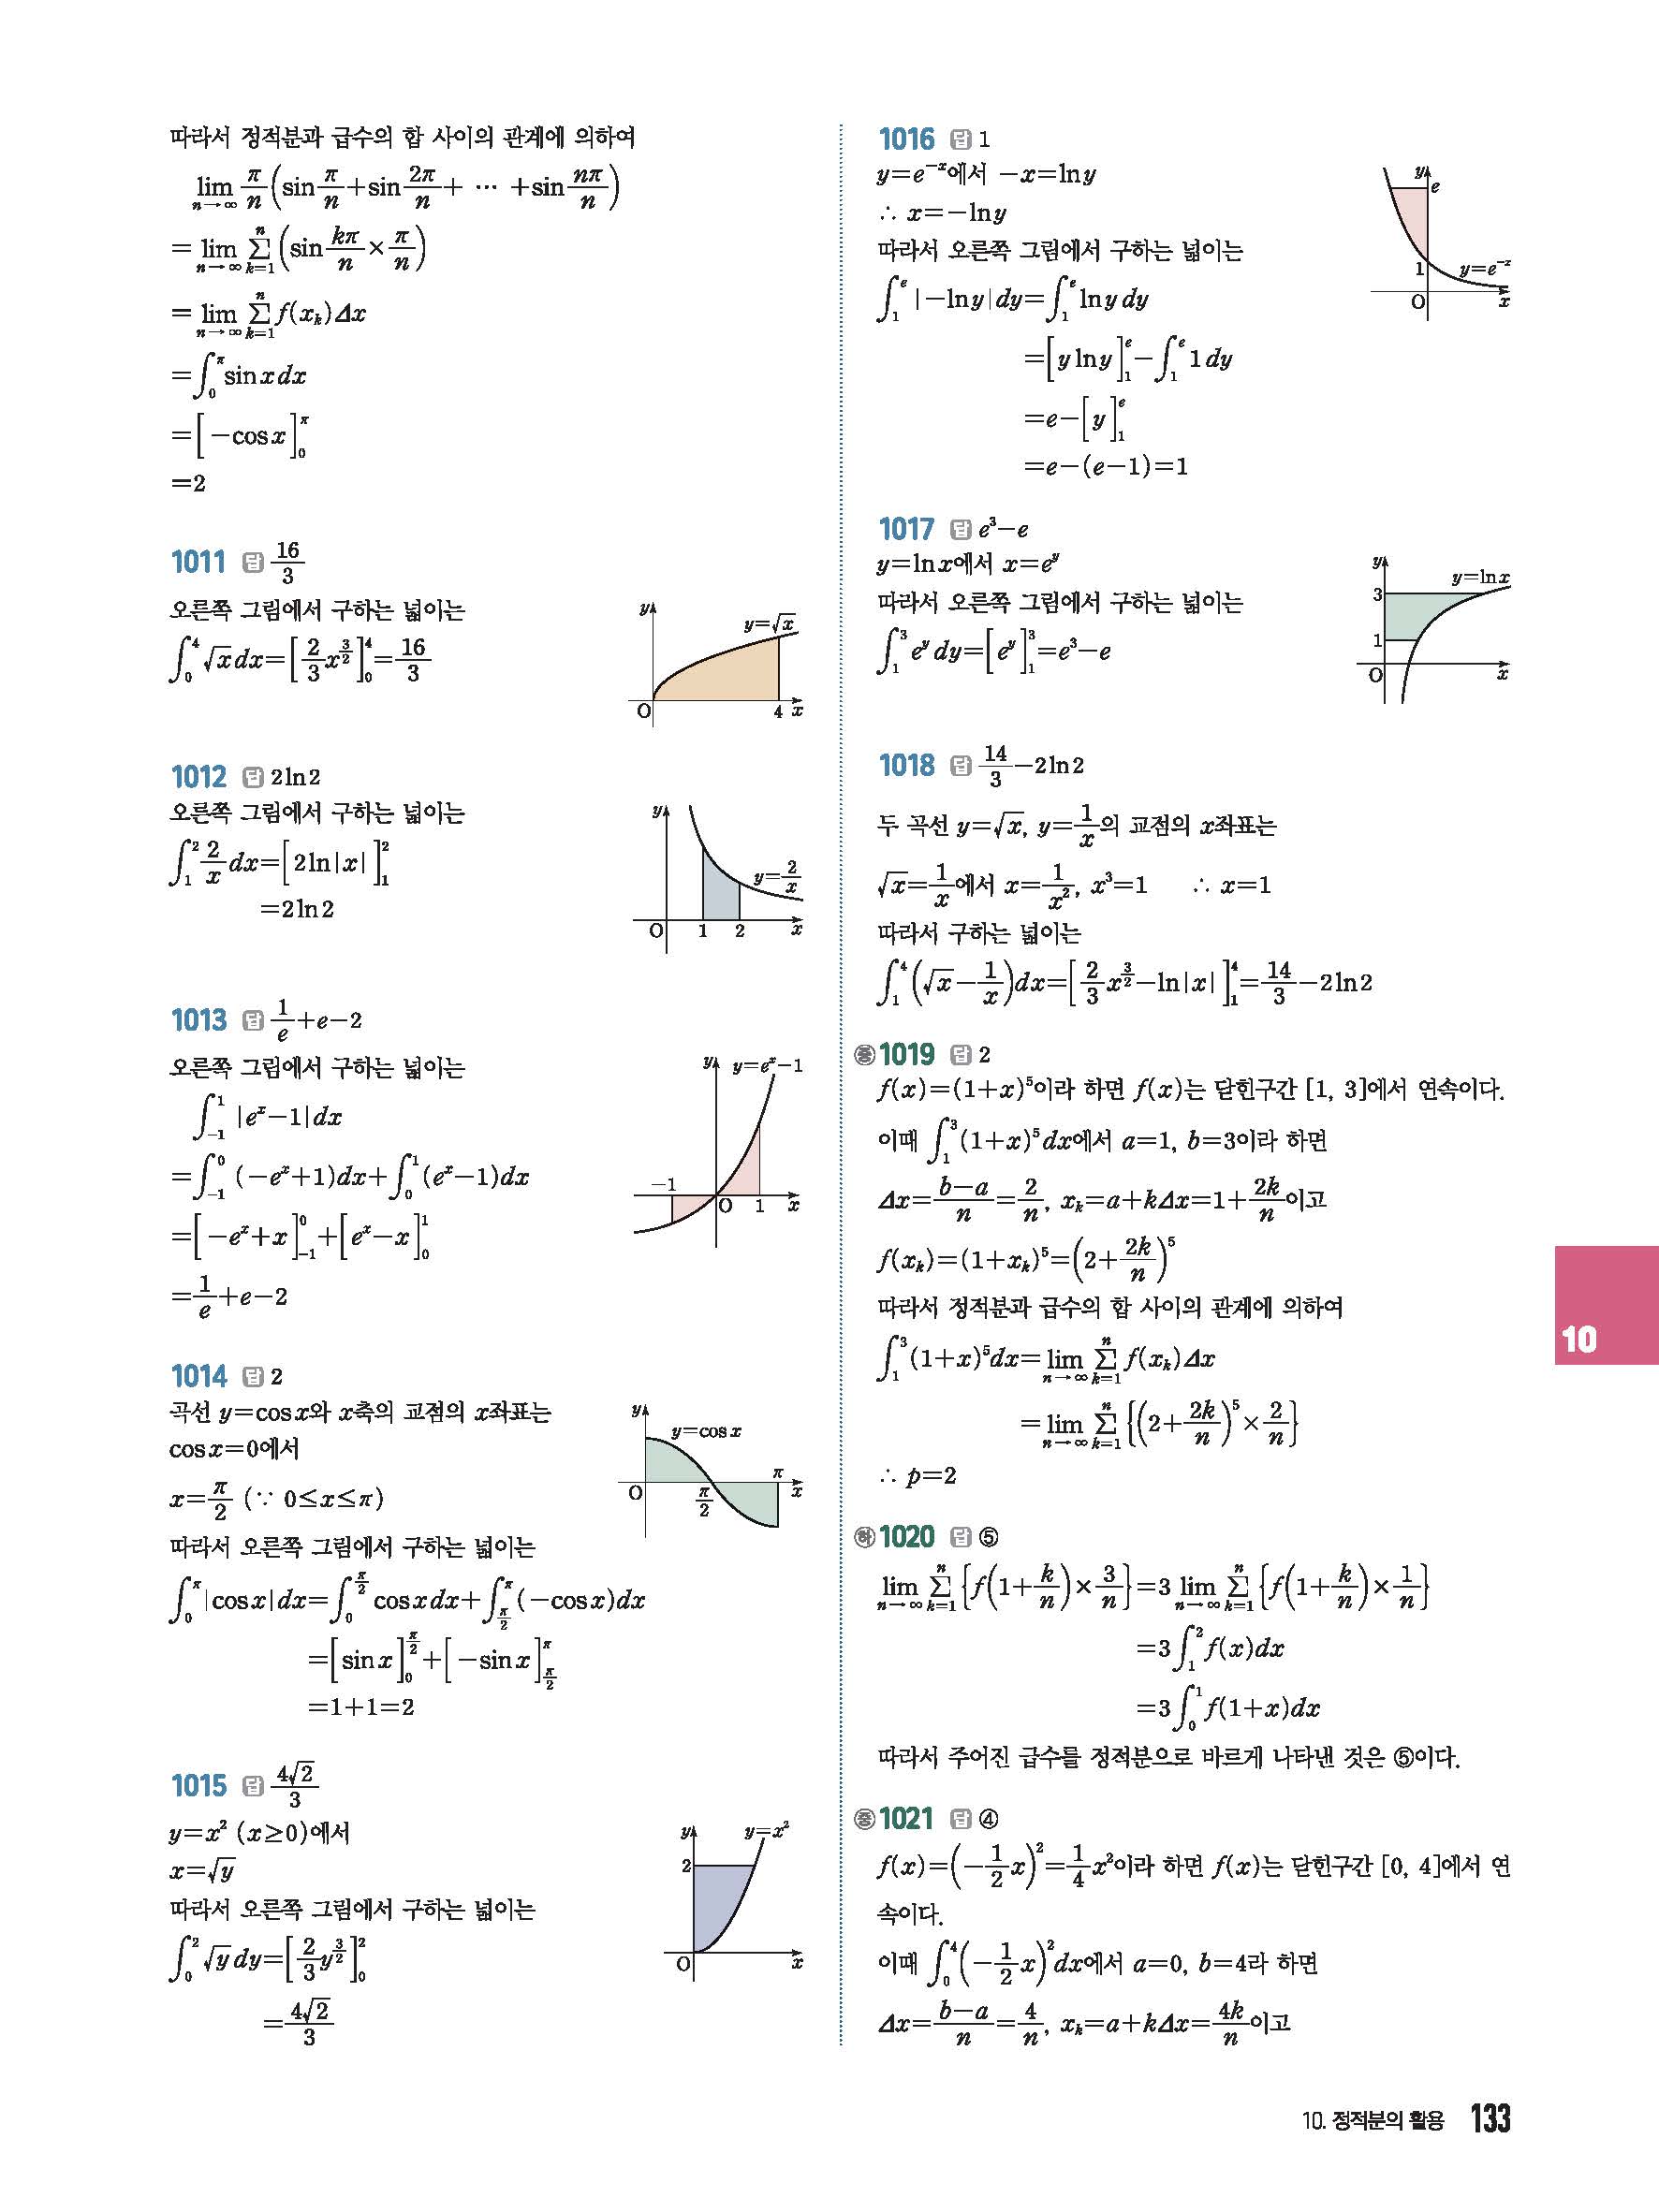 따라서 정적분과 급수의 합 사이의 관계에 의하여
lim_{n→∞} π/n (sin π/n + sin 2π/n + ⋯ + sin nπ/n)
= lim_{n→∞} Σ_{k=1}^{n} (sin kπ/n × π/n)
= lim_{n→∞} Σ_{k=1}^{n} f(x_k)Δx
= ∫_0^π sin x dx
= [−cos x]_0^π
=2
1011 답 16/3
오른쪽 그림에서 구하는 넓이는
∫_0^4 √x dx = [2/3 x^{3/2}]_0^4 = 16/3
y
y=√x
O 4 x
1012 답 2 ln 2
오른쪽 그림에서 구하는 넓이는
∫_1^2 2/x dx = [2 ln|x|]_1^2
=2 ln 2
y
y=2/x
O 1 2 x
1013 답 1/e + e − 2
오른쪽 그림에서 구하는 넓이는
∫_{−1}^1 |e^x−1| dx
= ∫_{−1}^0 (−e^x+1)dx + ∫_0^1 (e^x−1)dx
= [−e^x+x]_{−1}^0 + [e^x−x]_0^1
= 1/e + e − 2
y y=e^x−1
−1
O 1 x
1014 답 2
곡선 y=cos x와 x축의 교점의 x좌표는
cos x=0에서
x=π/2 (∵ 0≤x≤π)
따라서 오른쪽 그림에서 구하는 넓이는
∫_0^π |cos x| dx = ∫_0^{π/2} cos x dx + ∫_{π/2}^π (−cos x)dx
= [sin x]_0^{π/2} + [−sin x]_{π/2}^π
=1+1=2
y
y=cos x
π
O π/2 x
1015 답 4√2/3
y=x² (x≥0)에서
x=√y
따라서 오른쪽 그림에서 구하는 넓이는
∫_0^2 √y dy = [2/3 y^{3/2}]_0^2
= 4√2/3
y y=x²
2
O x
1016 답 1
y=e^{−x}에서 −x=ln y
∴ x=−ln y
따라서 오른쪽 그림에서 구하는 넓이는
∫_1^e |−ln y| dy = ∫_1^e ln y dy
= [y ln y]_1^e − ∫_1^e 1 dy
= e − [y]_1^e
=e−(e−1)=1
y
e
1 y=e^{−x}
O x
1017 답 e³−e
y=ln x에서 x=e^y
따라서 오른쪽 그림에서 구하는 넓이는
∫_1^3 e^y dy = [e^y]_1^3 = e³−e
y
y=ln x
3
1
O x
1018 답 14/3 − 2 ln 2
두 곡선 y=√x, y=1/x의 교점의 x좌표는
√x=1/x에서 x=1/x², x³=1 ∴ x=1
따라서 구하는 넓이는
∫_1^4 (√x − 1/x)dx = [2/3 x^{3/2} − ln|x|]_1^4 = 14/3 − 2 ln 2
중 1019 답 2
f(x)=(1+x)⁵이라 하면 f(x)는 닫힌구간 [1, 3]에서 연속이다.
이때 ∫_1^3 (1+x)⁵ dx에서 a=1, b=3이라 하면
Δx=(b−a)/n=2/n, x_k=a+kΔx=1+2k/n이고
f(x_k)=(1+x_k)⁵=(2+2k/n)⁵
따라서 정적분과 급수의 합 사이의 관계에 의하여
∫_1^3 (1+x)⁵dx = lim_{n→∞} Σ_{k=1}^{n} f(x_k)Δx
= lim_{n→∞} Σ_{k=1}^{n} {(2+2k/n)⁵ × 2/n}
∴ p=2
하 1020 답 ⑤
lim_{n→∞} Σ_{k=1}^{n} {f(1+k/n) × 3/n} = 3 lim_{n→∞} Σ_{k=1}^{n} {f(1+k/n) × 1/n}
= 3∫_1^2 f(x)dx
= 3∫_0^1 f(1+x)dx
따라서 주어진 급수를 정적분으로 바르게 나타낸 것은 ⑤이다.
중 1021 답 ④
f(x)=(−1/2 x)²=1/4 x²이라 하면 f(x)는 닫힌구간 [0, 4]에서 연
속이다.
이때 ∫_0^4 (−1/2 x)² dx에서 a=0, b=4라 하면
Δx=(b−a)/n=4/n, x_k=a+kΔx=4k/n이고
10
10. 정적분의 활용 133